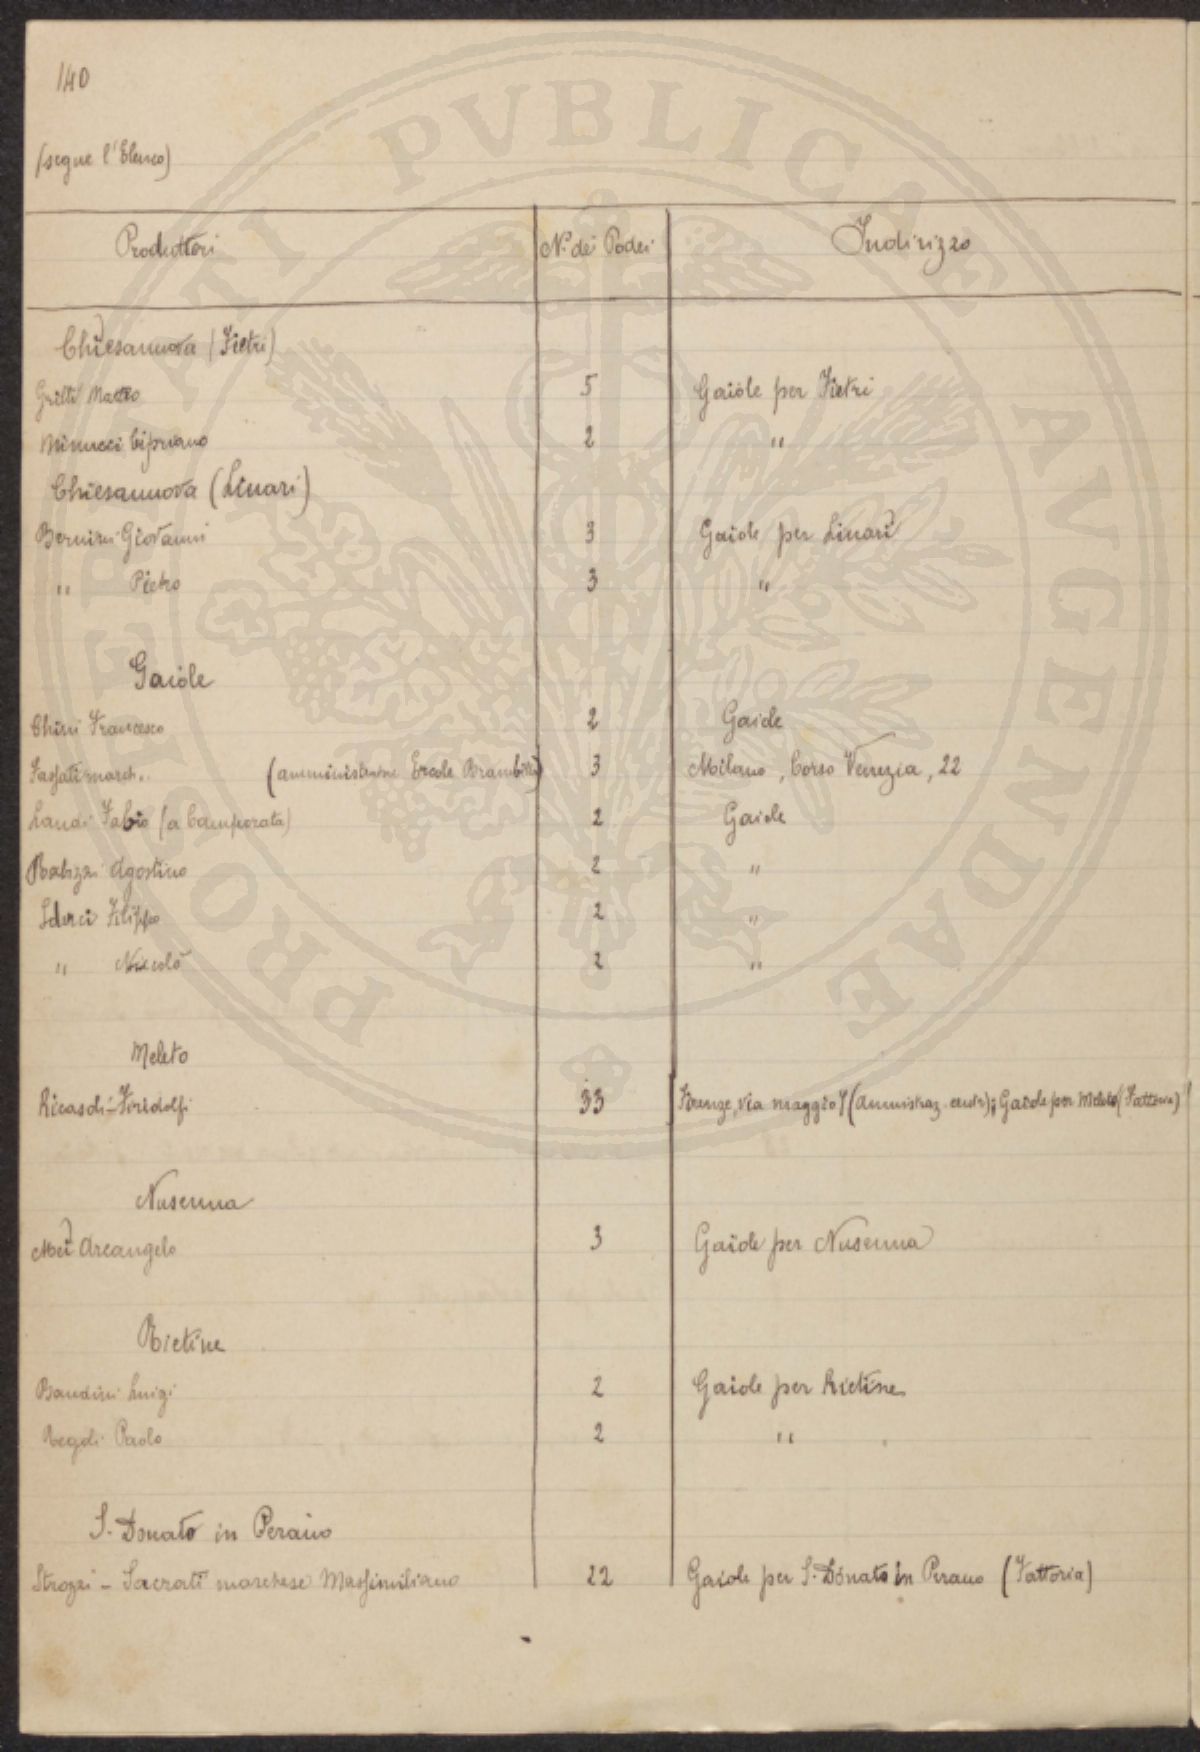 140
(segue l'Elenco)
Produttori N.º dei Poderi Indirizzo
Chiesanuova (Fietri)
Grilli Matteo 5 Gaiole per Fietri
Minucci Cipriano 2 "
Chiesannova (Linari)
Bernini Giovanni 3 Gaiole per Linari
" Pietro 3 "
Gaiole
Chini Francesco 2 Gaiole
Fassati march. (amministratore Ercole Brambilla) 3 Milano, Corso Venezia, 22
Landi Fabio (a Camporata) 2 Gaiole
Agostino 2 "
Filippo 2 "
" Niccolò 2 "
Meleto
Ricasoli-Firidolfi 33 Firenze, via maggio 7 (amministraz. centr); Gaiole per Meleto (Fattoria)
Nusenna
Mei Arcangelo 3 Gaiole per Nusenna
Rietine
Bandini Luigi 2 Gaiole per Rietine
Regoli Paolo 2 "
S. Donato in Perano
Strozzi - Sacrati marchese Massimiliano 22 Gaiole per S. Donato in Perano (Fattoria)
PROPERTATI PVBLICAE AVGENDAE